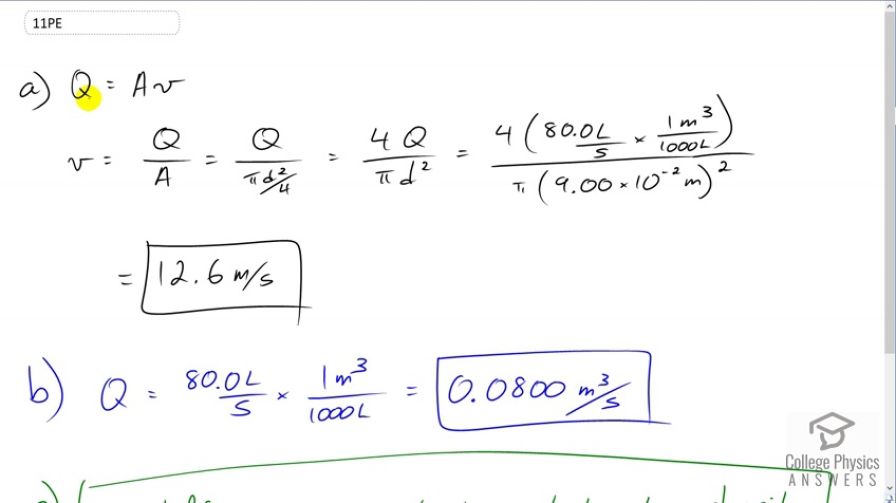 11PE
a) Q = Av
v = Q/A = Q/(πd²/4) = 4Q/(πd²) = 4(80.0L/S × 1m³/1000L)/(π(9.00×10⁻²m)²)
= 12.6 m/s
b) Q = 80.0L/S × 1m³/1000L = 0.0800 m³/s
College Physics
ANSWERS